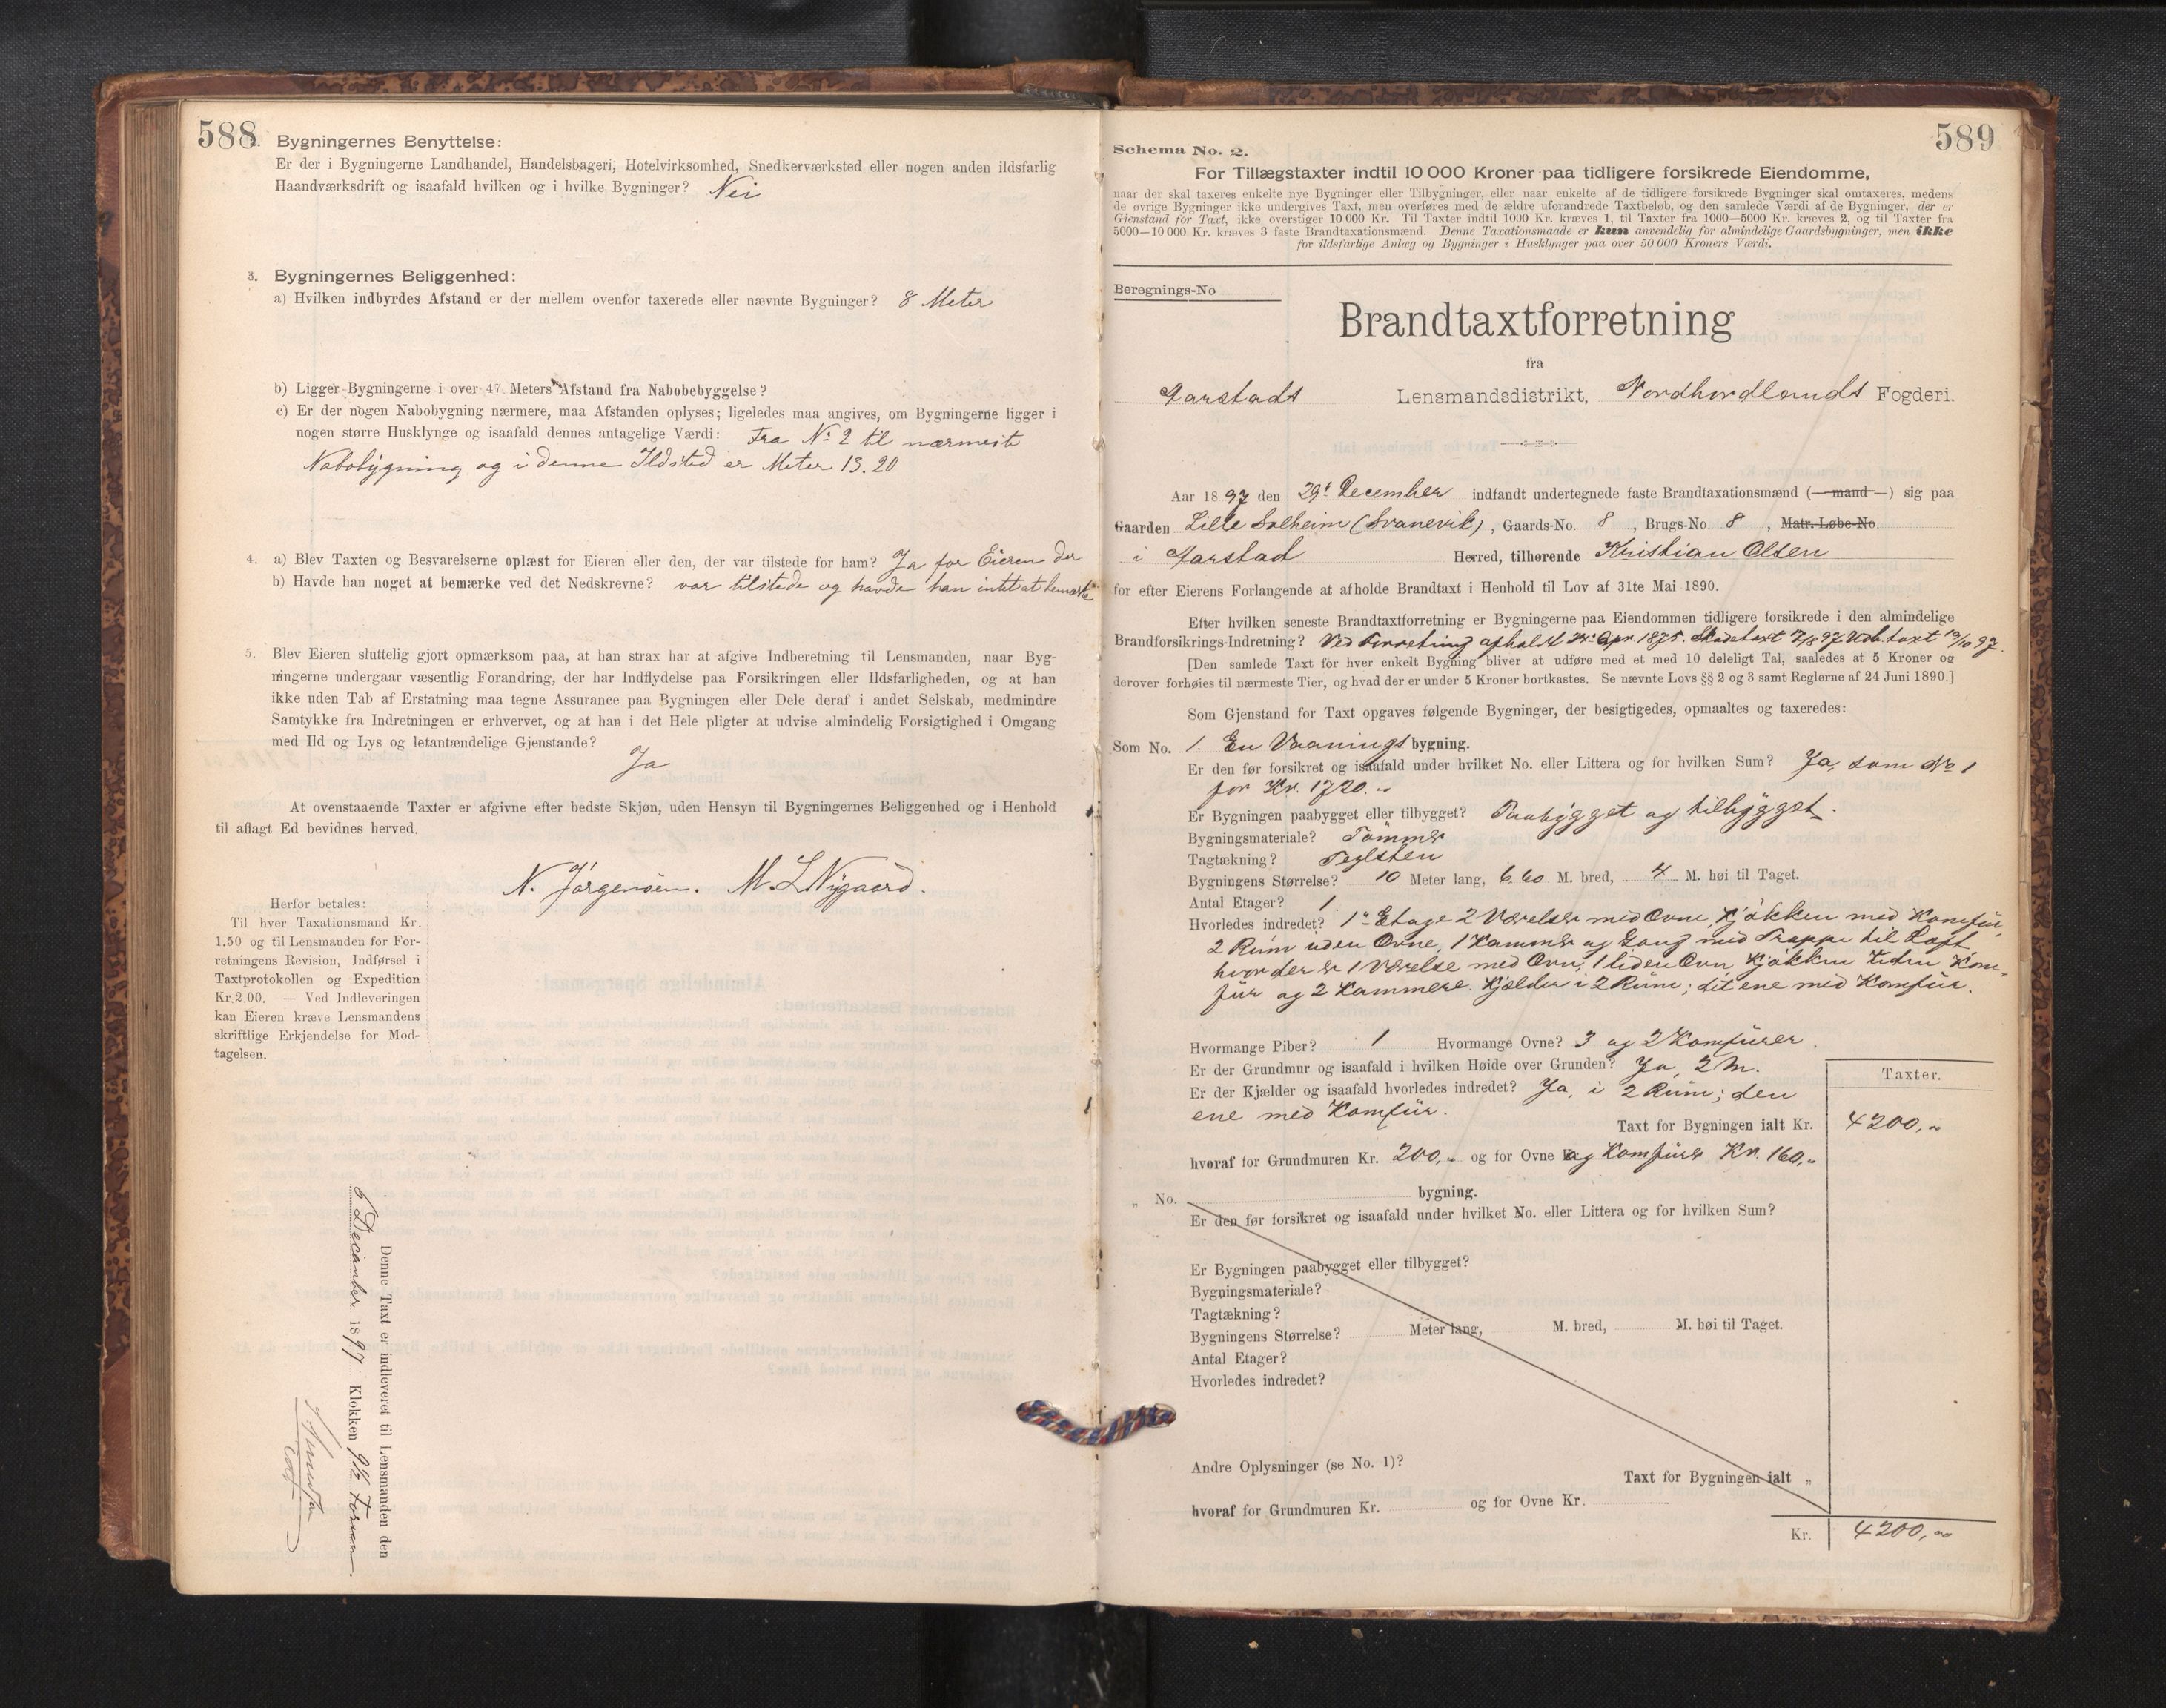 588
2. Bygningernes Benyttelse:
Er der i Bygningerne Landhandel, Handelsbageri, Hotelvirksomhed, Snedkerværksted eller nogen anden ildsfarlig
Haandværksdrift og isaafald hvilken og i hvilke Bygninger? Nei
3. Bygningernes Beliggenhed:
a) Hvilken indbyrdes Afstand er der mellem ovenfor taxerede eller nævnte Bygninger? 8 Meter
b) Ligger Bygningerne i over 47 Meters Afstand fra Nabobebyggelse?
c) Er der nogen Nabobygning nærmere, maa Afstanden oplyses; ligeledes maa angives, om Bygningerne ligger i
nogen større Husklynge og isaafald dennes antagelige Værdi: Fra No 2 til nærmeste
Nabobygning og i denne Ildsted er Meter 13.20
4. a) Blev Taxten og Besvarelserne oplæst for Eieren eller den, der var tilstede for ham? Ja for Eieren der
b) Havde han noget at bemærke ved det Nedskrevne? var tilstede og havde han intet at bemærke
5. Blev Eieren sluttelig gjort opmærksom paa, at han strax har at afgive Indberetning til Lensmanden, naar Byg-
ningerne undergaar væsentlig Forandring, der har Indflydelse paa Forsikringen eller Ildsfarligheden, og at han
ikke uden Tab af Erstatning maa tegne Assurance paa Bygningen eller Dele deraf i andet Selskab, medmindre
Samtykke fra Indretningen er erhvervet, og at han i det Hele pligter at udvise almindelig Forsigtighed i Omgang
med Ild og Lys og letantændelige Gjenstande?
Ja
At ovenstaaende Taxter er afgivne efter bedste Skjøn, uden Hensyn til Bygningernes Beliggenhed og i Henhold
til aflagt Ed bevidnes herved.
N. Jørgensen. M. L Nygaard.
Herfor betales:
Til hver Taxationsmand Kr.
1.50 og til Lensmanden for For-
retningens Revision, Indførsel i
Taxtprotokollen og Expedition
Kr. 2.00. — Ved Indleveringen
kan Eieren kræve Lensmandens
skriftlige Erkjendelse for Mod-
tagelsen.
Denne Taxt er indleveret til Lensmanden den
December 1897 Klokken 9½ Form.
589
Schema No. 2.
For Tillægstaxter indtil 10 000 Kroner paa tidligere forsikrede Eiendomme,
naar der skal taxeres enkelte nye Bygninger eller Tilbygninger, eller naar enkelte af de tidligere forsikrede Bygninger skal omtaxeres, medens
de øvrige Bygninger ikke undergives Taxt, men overføres med de ældre uforandrede Taxtbeløb, og den samlede Værdi af de Bygninger, der er
Gjenstand for Taxt, ikke overstiger 10 000 Kr. Til Taxter indtil 1000 Kr. kræves 1, til Taxter fra 1000—5000 Kr. kræves 2, og til Taxter fra
5000—10 000 Kr. kræves 3 faste Brandtaxationsmænd. Denne Taxationsmaade er kun anvendelig for almindelige Gaardsbygninger, men ikke
for ildsfarlige Anlæg og Bygninger i Husklynger paa over 50 000 Kroners Værdi.
Beregnings-No
Brandtaxtforretning
fra
Aarstads Lensmandsdistrikt, Nordhordlands Fogderi.
Aar 1897 den 29t December indfandt undertegnede faste Brandtaxationsmænd (—mand—) sig paa
Gaarden Lille Solheim (Svanevik), Gaards-No. 8, Brugs-No. 8, Matr.-Løbe-No.
i Aarstad Herred, tilhørende Kristian Olsen
for efter Eierens Forlangende at afholde Brandtaxt i Henhold til Lov af 31te Mai 1890.
Efter hvilken seneste Brandtaxtforretning er Bygningerne paa Eiendommen tidligere forsikrede i den almindelige
Brandforsikrings-Indretning? Ved Forretning afholdt Apr. 1875. Skadetaxt 7/8 97 taxt 19/10 97.
[Den samlede Taxt for hver enkelt Bygning bliver at udføre med et med 10 deleligt Tal, saaledes at 5 Kroner og
derover forhøies til nærmeste Tier, og hvad der er under 5 Kroner bortkastes. Se nævnte Lovs §§ 2 og 3 samt Reglerne af 24 Juni 1890.]
Som Gjenstand for Taxt opgaves følgende Bygninger, der besigtigedes, opmaaltes og taxeredes:
Som No. 1. En Vaanings bygning.
Er den før forsikret og isaafald under hvilket No. eller Littera og for hvilken Sum? Ja, som No 1
for Kr. 1720.
Er Bygningen paabygget eller tilbygget? Paabygget og tilbygget.
Bygningsmateriale? Tømmer
Tagtækning? Teglsten
Bygningens Størrelse? 10 Meter lang, 6,60 M. bred, 4 M. høi til Taget.
Antal Etager? 1
Hvorledes indredet? 1ste Etage 2 Værelser med Ovne, Kjøkken med Komfur,
2 Rum uden Ovne, 1 Kammer og Gang med Trappe til Loft,
hvor der er 1 Værelse med Ovn, 1 liden Ovn, Kjøkken uden Kom-
fur og 2 Kammere. Kjelder i 2 Rum; det ene med Komfur.
Hvormange Piber? 1 Hvormange Ovne? 3 og 2 Komfurer.
Er der Grundmur og isaafald i hvilken Høide over Grunden? Ja, 2 M.
Er der Kjælder og isaafald hvorledes indredet? Ja, i 2 Rum; den
ene med Komfur.
Taxter.
Taxt for Bygningen ialt Kr. 4200,-
hvoraf for Grundmuren Kr. 200,- og for Ovne og Komfurer Kr. 160,-
" No. bygning.
Er den før forsikret og isaafald under hvilket No. eller Littera og for hvilken Sum?
Er Bygningen paabygget eller tilbygget?
Bygningsmateriale?
Tagtækning?
Bygningens Størrelse? Meter lang, M. bred, M. høi til Taget.
Antal Etager?
Hvorledes indredet?
Andre Oplysninger (se No. 1)?
Taxt for Bygningen ialt "
hvoraf for Grundmuren Kr. og for Ovne Kr.
Kr. 4200,-